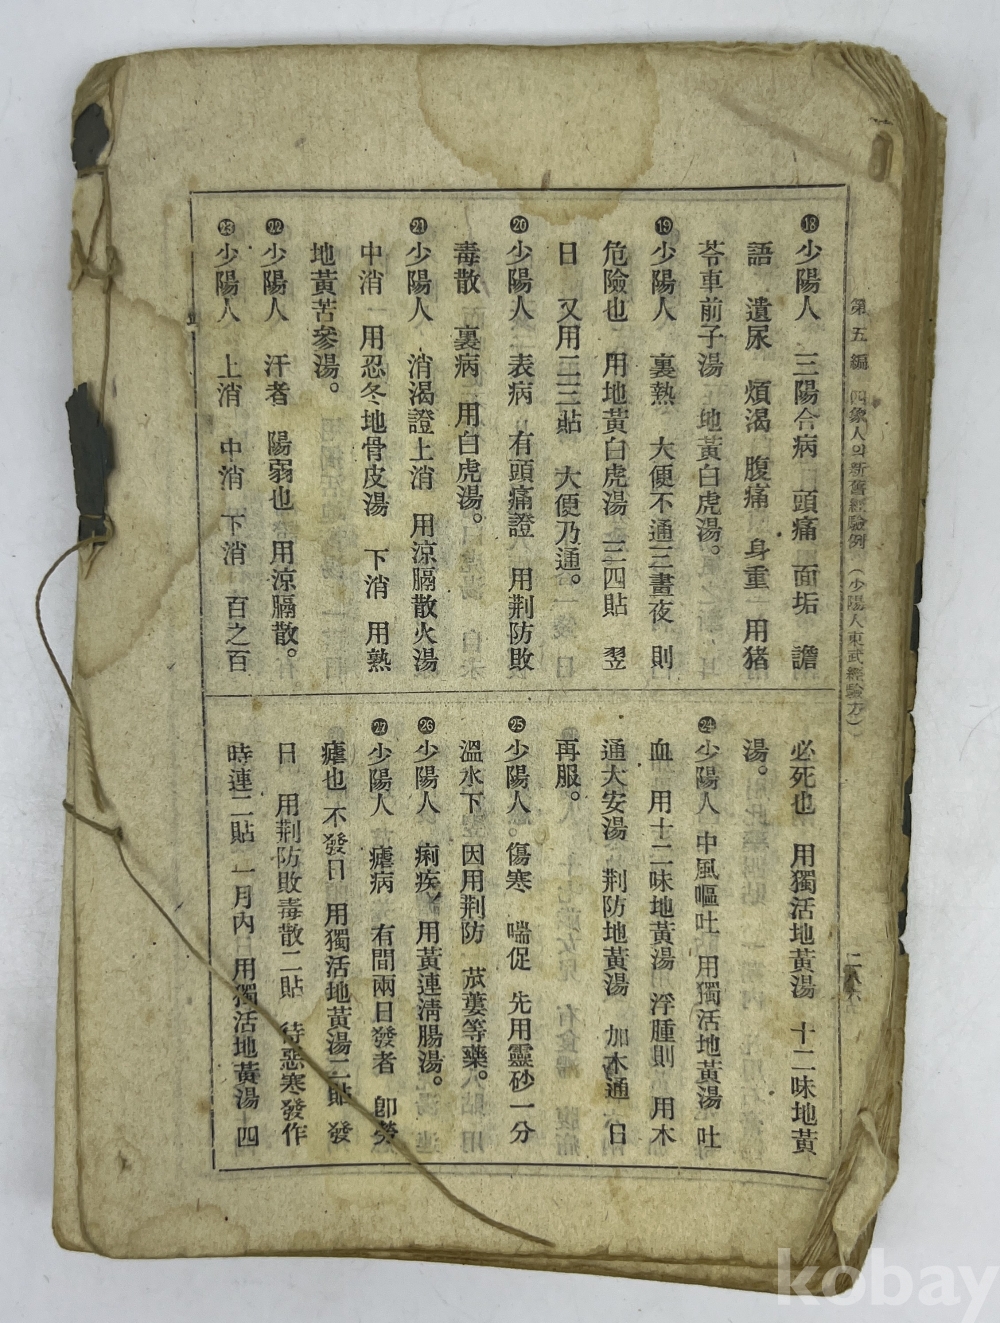 第五編 四象人의新舊經驗例 (少陽人東武經驗方)
二八六
⑱少陽人 三陽合病 頭痛 面垢 譫
語 遺尿 煩渴 腹痛 身重 用猪
苓車前子湯 地黃白虎湯。
⑲少陽人 裏熱 大便不通三晝夜 則
危險也 用地黃白虎湯 三四貼 翌
日 又用二三貼 大便乃通。
⑳少陽人 表病 有頭痛證 用荆防敗
毒散 裏病 用白虎湯。
㉑少陽人 消渴證上消 用涼膈散火湯
中消 用忍冬地骨皮湯 下消 用熟
地黃苦參湯。
㉒少陽人 汗者 陽弱也 用涼膈散。
㉓少陽人 上消 中消 下消 百之百
必死也 用獨活地黃湯 十二味地黃
湯。
㉔少陽人 中風嘔吐 用獨活地黃湯 吐
血 用十二味地黃湯 浮腫則 用木
通大安湯 荆防地黃湯 加木通 日
再服。
㉕少陽人。傷寒 喘促 先用靈砂一分
溫水下 因用荆防 苽蔞等藥。
㉖少陽人 痢疾 用黃連淸腸湯。
㉗少陽人 瘧病 有間兩日發者 卽勞
瘧也 不發日 用獨活地黃湯二貼 發
日 用荆防敗毒散二貼 待惡寒發作
時連二貼 一月內 用獨活地黃湯 四
kobay